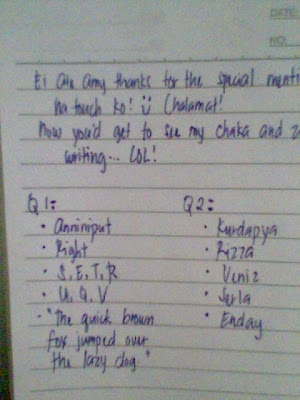 DATE:
NO.
Ei ate amy thanks for the special menti
na touch ko! Chalamat!
Now you'd get to see my chaka and
writing... LOL!
Q1:
• Anniniput
• Right
• S, E, T, R
• U, Q, V
- "the quick brown
fox jumped over
the lazy dog."
Q2:
• Kurdapya
• Rizza
• Veniz
• Serla
• Enday